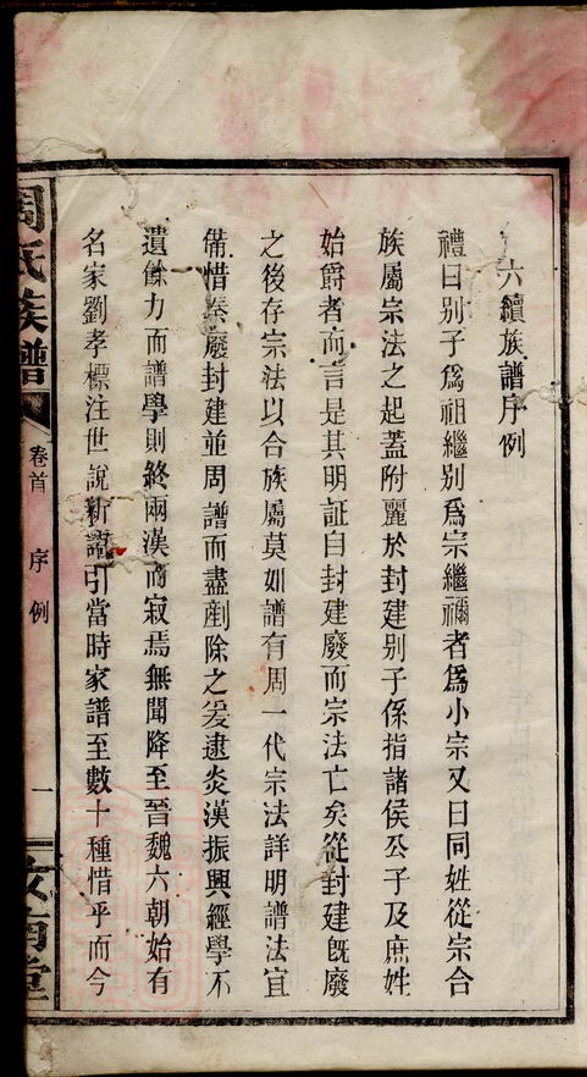 六續族譜序例
禮曰別子爲祖繼別爲宗繼禰者爲小宗又曰同姓從宗合
族屬宗法之起蓋附麗於封建別子係指諸侯公子及庶姓
始爵者而言是其明証自封建廢而宗法亡矣從封建既廢
之後存宗法以合族屬莫如譜有周一代宗法詳明譜法宜
備惜秦廢封建並周譜而盡剷除之爰逮炎漢振興經學不
遺餘力而譜學則終兩漢而寂焉無聞降至晉魏六朝始有
名家劉孝標注世說新語引當時家譜至數十種惜乎而今
周氏族譜
卷首
序例
一
汝南堂